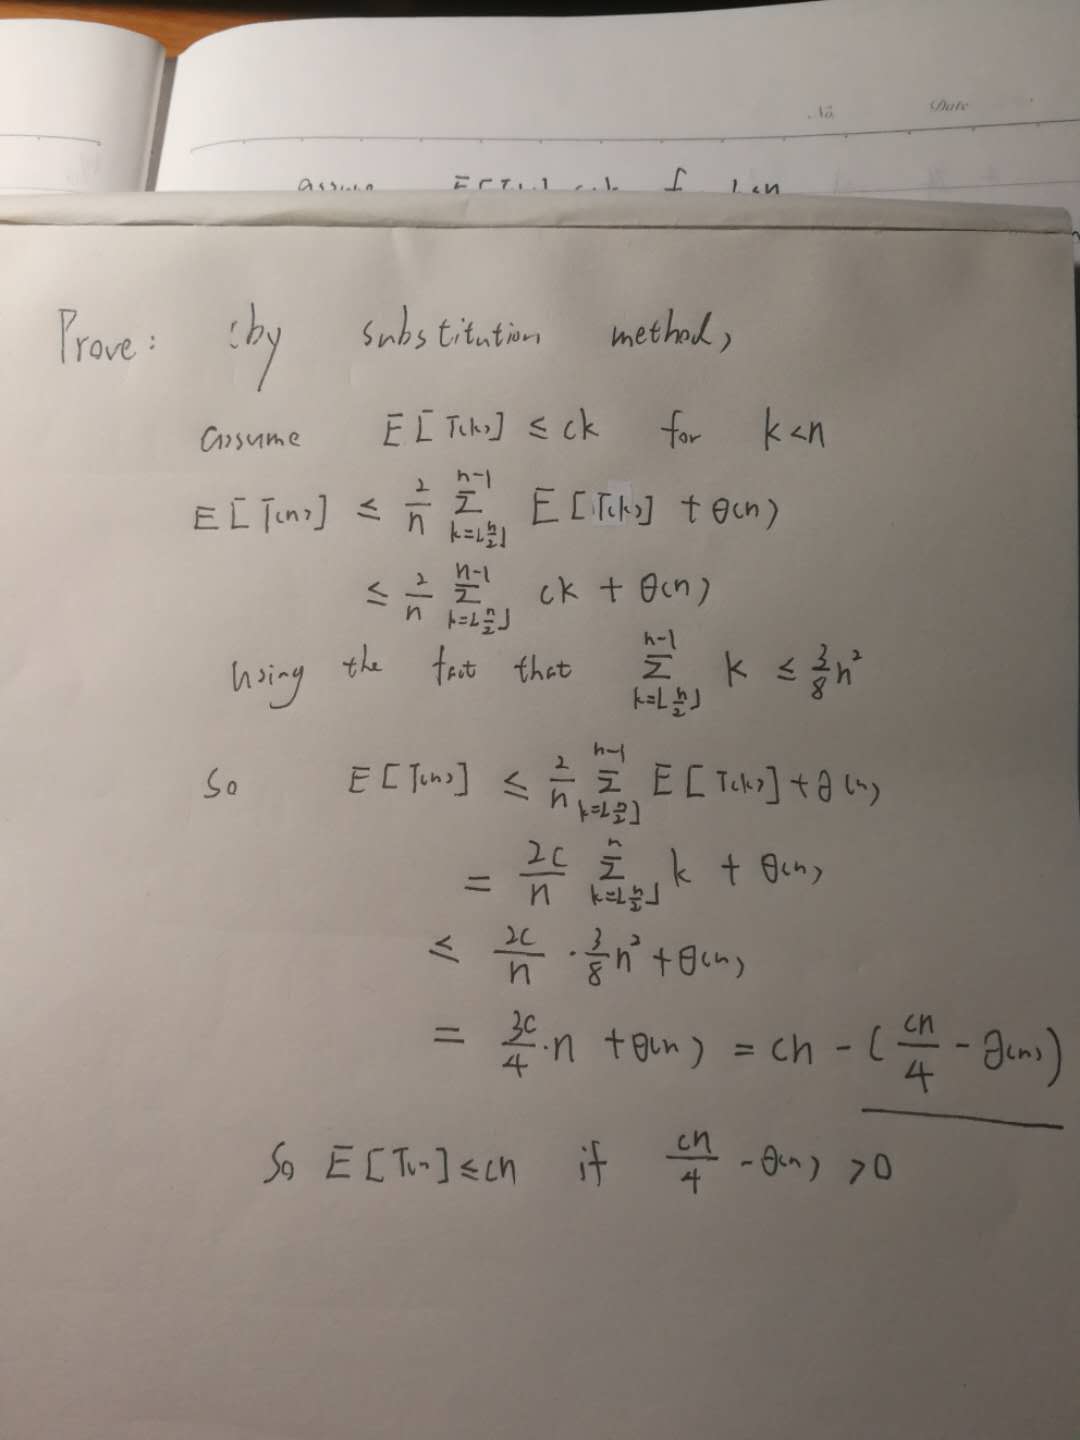 No. Date
assume E[T(k)] ≤ck f k<n
Prove: :by substitution method,
assume E[T(k)] ≤ ck for k<n
E[T(n)] ≤ 2/n Σ_{k=⌊n/2⌋}^{n-1} E[T(k)] + θ(n)
≤ 2/n Σ_{k=⌊n/2⌋}^{n-1} ck + θ(n)
using the fact that Σ_{k=⌊n/2⌋}^{n-1} k ≤ 3/8 n²
So E[T(n)] ≤ 2/n Σ_{k=⌊n/2⌋}^{n-1} E[T(k)] + θ(n)
= 2c/n Σ_{k=⌊n/2⌋}^{n} k + θ(n)
≤ 2c/n · 3/8 n² + θ(n)
= 3c/4 · n + θ(n) = cn - (cn/4 - θ(n))
So E[T(n] ≤ cn if cn/4 - θ(n) >0